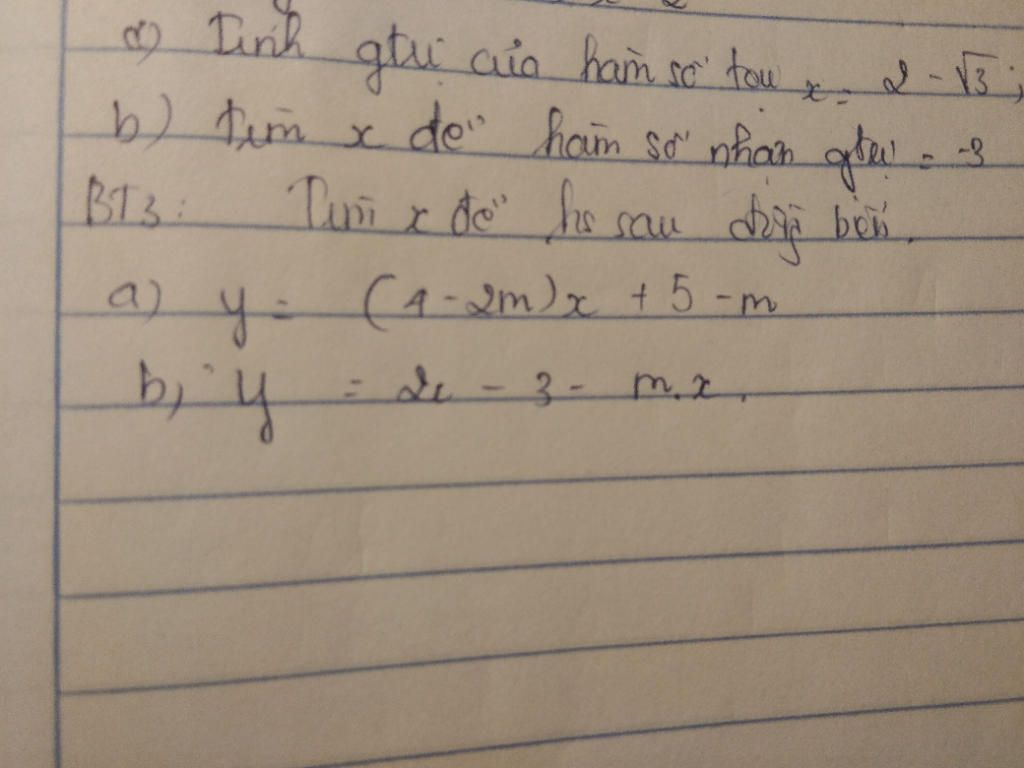 a) Tính gtrị của hàm số tại x = 2 - √3;
b) Tìm x để hàm số nhận gtrị = -3
BT3: Tìm x để hs sau đồng biến.
a) y = (1 - 2m)x + 5 - m
b, y = 2x - 3 - m.x.